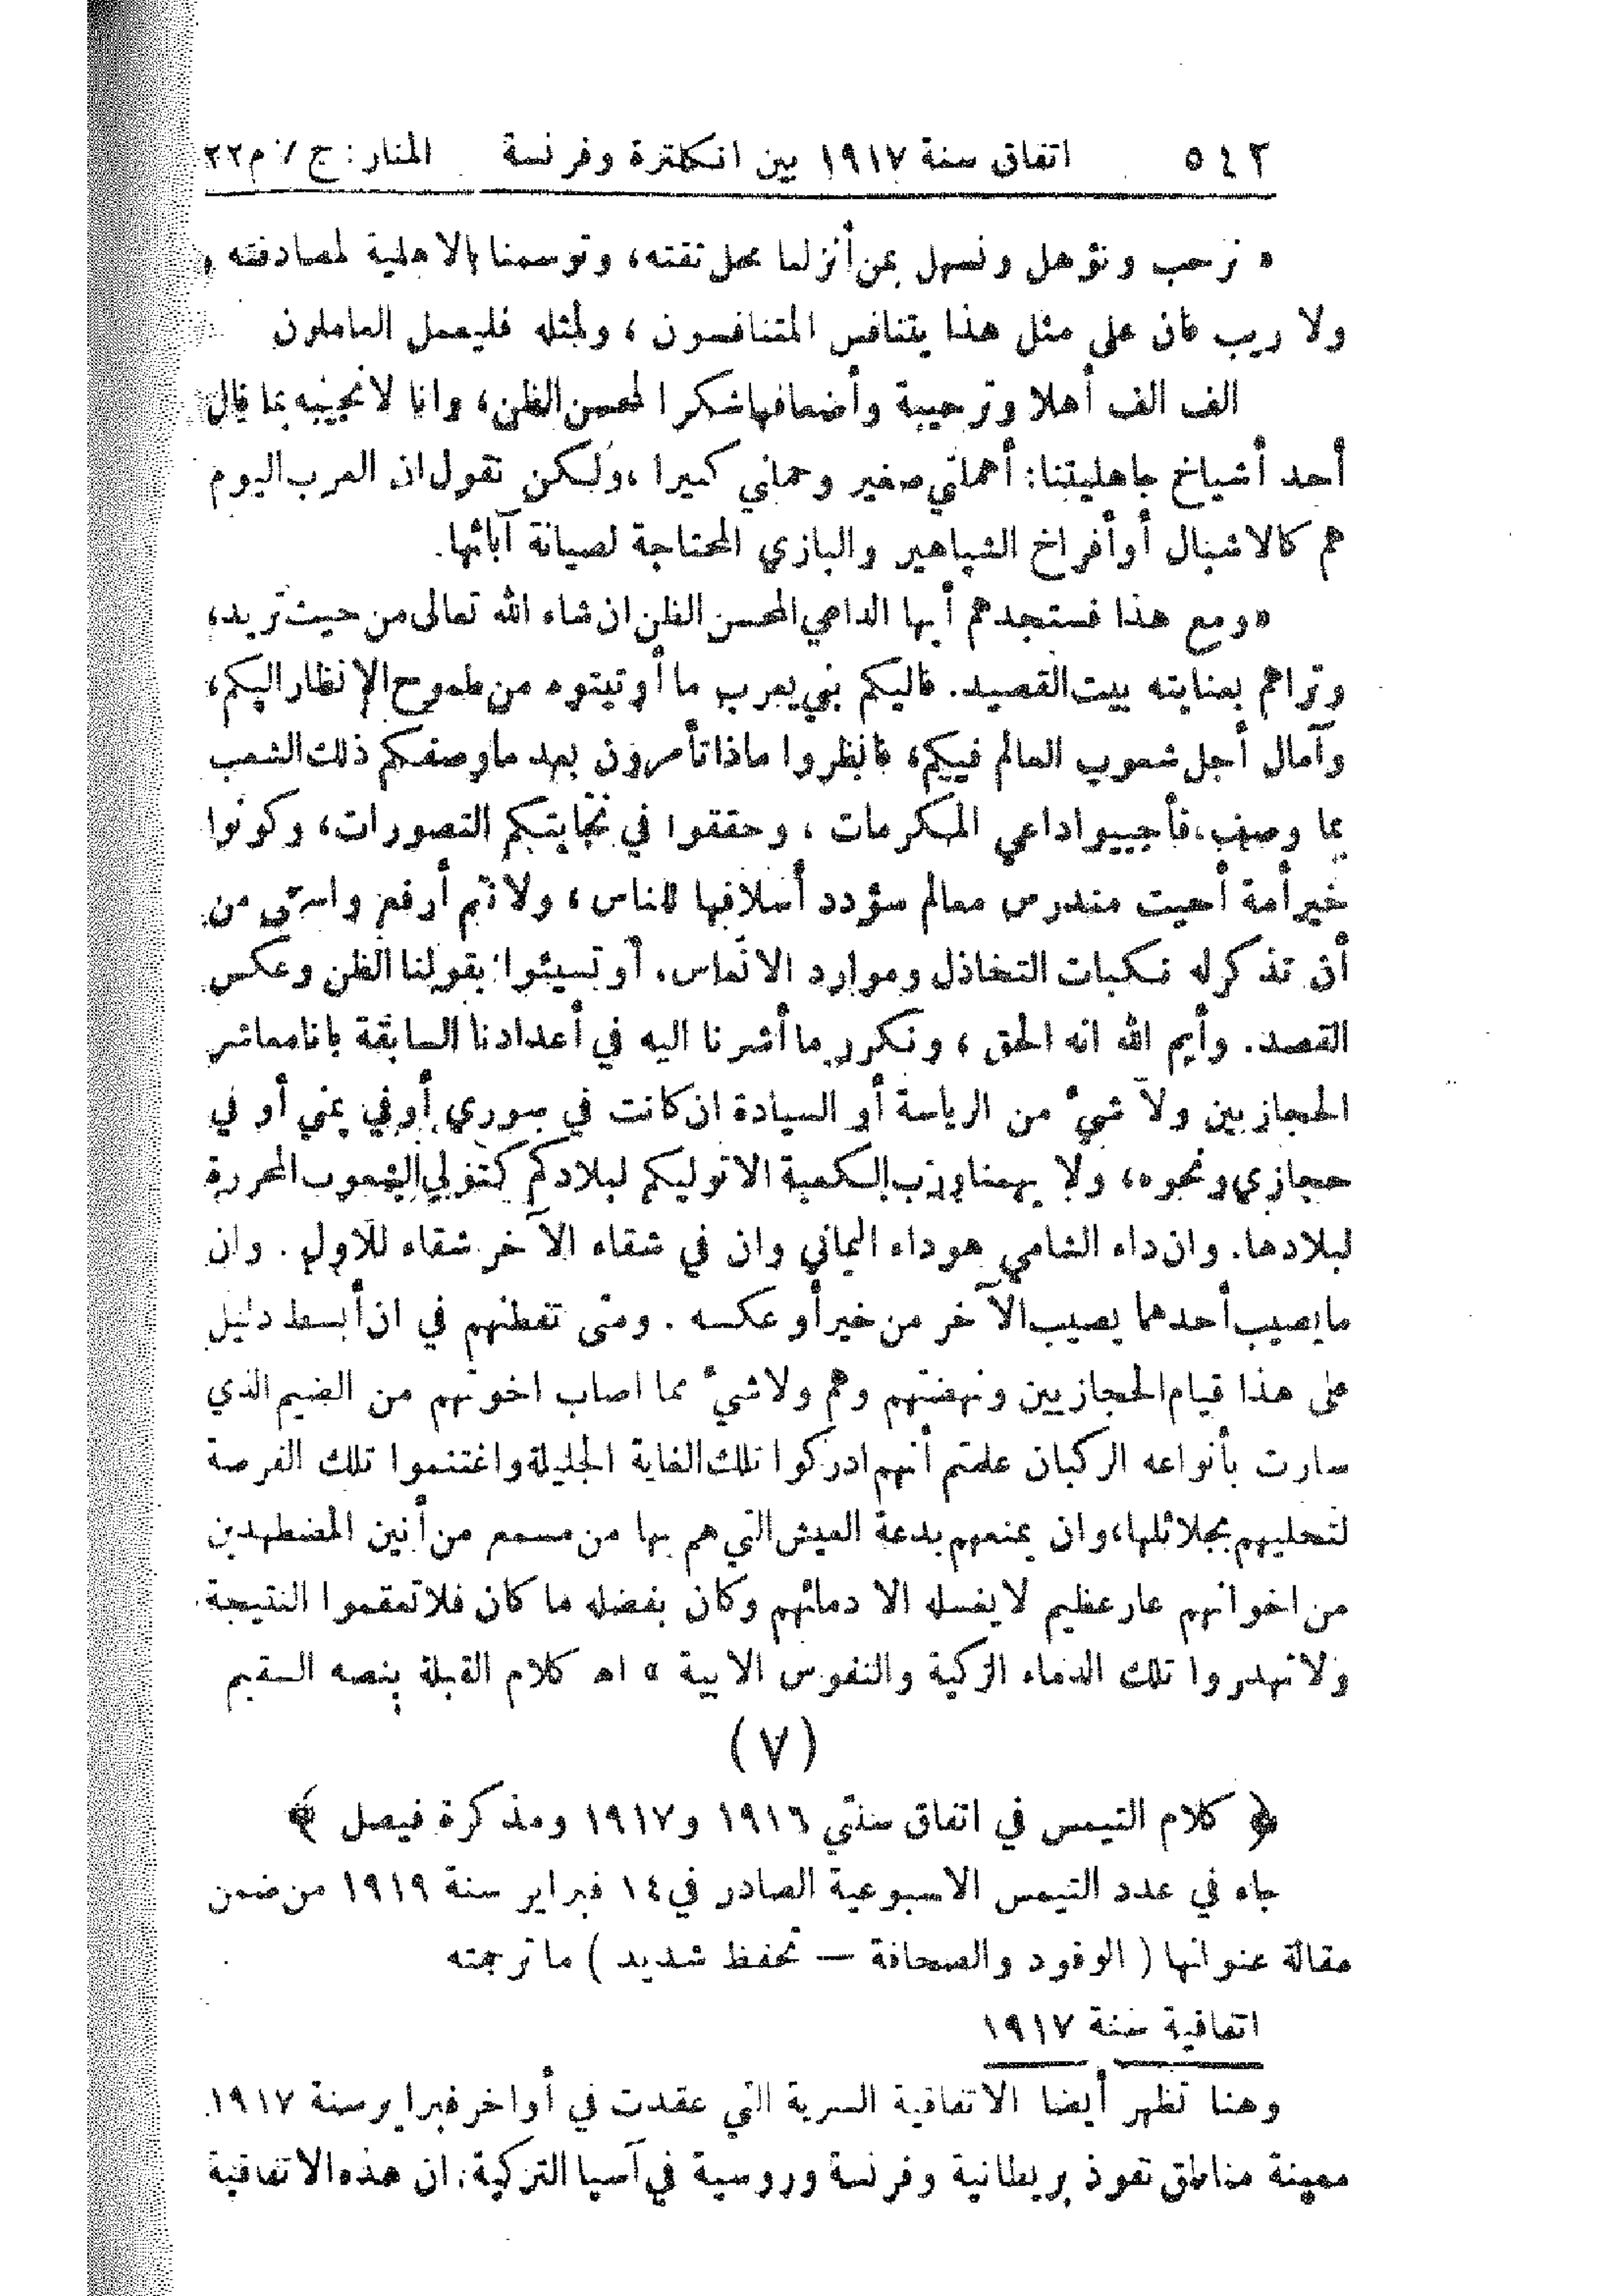 ٥٤٢ اتفاق سنة ١٩١٧ بين انكلترة وفرنسة المنار: ج ٢٢م
« نرحب ونؤهل ونسهل بمن أنزلنا محل ثقته، وتوسمنا بالاهلية لمصادفته،
ولا ريب فان على مثل هذا يتنافس المتنافسون ، ولمثله فليعمل العاملون
الف الف أهلا وترحيبة وأضعافها شكرا لحسن الظن، وانا لا نجيبه بما قال
أحد أشياخ جاهليتنا: أهملني صغير وحملني كبيرا ، ولكن نقول ان العرب اليوم
هم كالاشبال أو أفراخ الشياهير والبازي المحتاجة لصيانة آبائها.
« ومع هذا فستجدهم أيها الداعي المحسن الظن ان شاء الله تعالى من حيث تريد،
وتراهم بعنايته بيت القصيد. فاليكم بني يعرب ما أوتيتوه من طموح الانظار اليكم،
وآمال أجل شعوب العالم فيكم، فانظروا ماذا تأمرون بعد ما وصفكم ذلك الشعب
بما وصف، فأجيبوا داعي المكرمات ، وحققوا في نجابتكم التصورات، وكونوا
خير أمة أحيت مندرس معالم سؤدد أسلافها للناس، ولأنتم أرفع واسمى من
أن تذكر له نكبات التخاذل وموارد الاتعاس، أو تسيئوا بقولنا الظن وعكس
القصد. وأيم الله انه الحق ، ونكرر ما أشرنا اليه في أعدادنا السابقة بانا معاشر
الحجازيين ولا شيء من الرياسة أو السيادة ان كانت في سوري أو في يمني أو في
حجازي ونحوه، ولا يهمنا ورب الكعبة الا توليكم لبلادكم كتولي الشعوب المحررة
لبلادها. وان داء الشامي هو داء اليماني وان في شقاء الآخر شقاء للأول . وان
ما يصيب أحدهما يصيب الآخر من خير أو عكسه . ومتى تفطنهم في ان أبسط دليل
على هذا قيام الحجازيين ونهضتهم وهم ولا شيء مما اصاب اخوتهم من الضيم الذي
سارت بأنواعه الركبان علمتم أنهم ادركوا تلك الغاية الجليلة واغتنموا تلك الفرصة
لتحليهم بجلائلها، وان يمنعهم بدعة العيش التي هم بها من مسمع من أنين المضطهدين
من اخوانهم عار عظيم لا يغسله الا دمائهم وكان بفضله ما كان فلا تعقموا النتيجة
ولا تهدروا تلك الدماء الزكية والنفوس الابية » اه كلام القبلة بنصه السقيم
(٧)
﴿ كلام التيمس في اتفاق سنتي ١٩١٦ و١٩١٧ ومذكرة فيصل ﴾
جاء في عدد التيمس الاسبوعية الصادر في ١٤ فبراير سنة ١٩١٩ من ضمن
مقالة عنوانها ( الوفود والصحافة — تحفظ شديد ) ما ترجمته
اتفاقية سنة ١٩١٧
وهنا تظهر أيضا الاتفاقية السرية التي عقدت في أواخر فبراير سنة ١٩١٧
معينة مناطق نفوذ بريطانية وفرنسة وروسية في آسيا التركية. ان هذه الاتفاقية